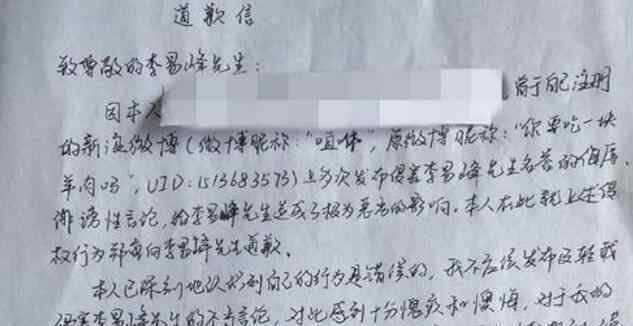 道歉信
致尊敬的李易峰先生：
因本人 曾于自己注册
的新浪微博（微博昵称："咀怵"，原微博昵称："你要吃一块
羊肉吗"，UID:1513683573）上多次发布侵害李易峰先生名誉的侮辱、
诽谤性言论，给李易峰先生造成了极为恶劣的影响。本人在此就上述侵
权行为郑重向李易峰先生道歉。
本人已深刻地认识到自己的行为是错误的，我不应该发布
侵害李易峰先生的不当言论，对此感到十分愧疚和懊悔，对于我的